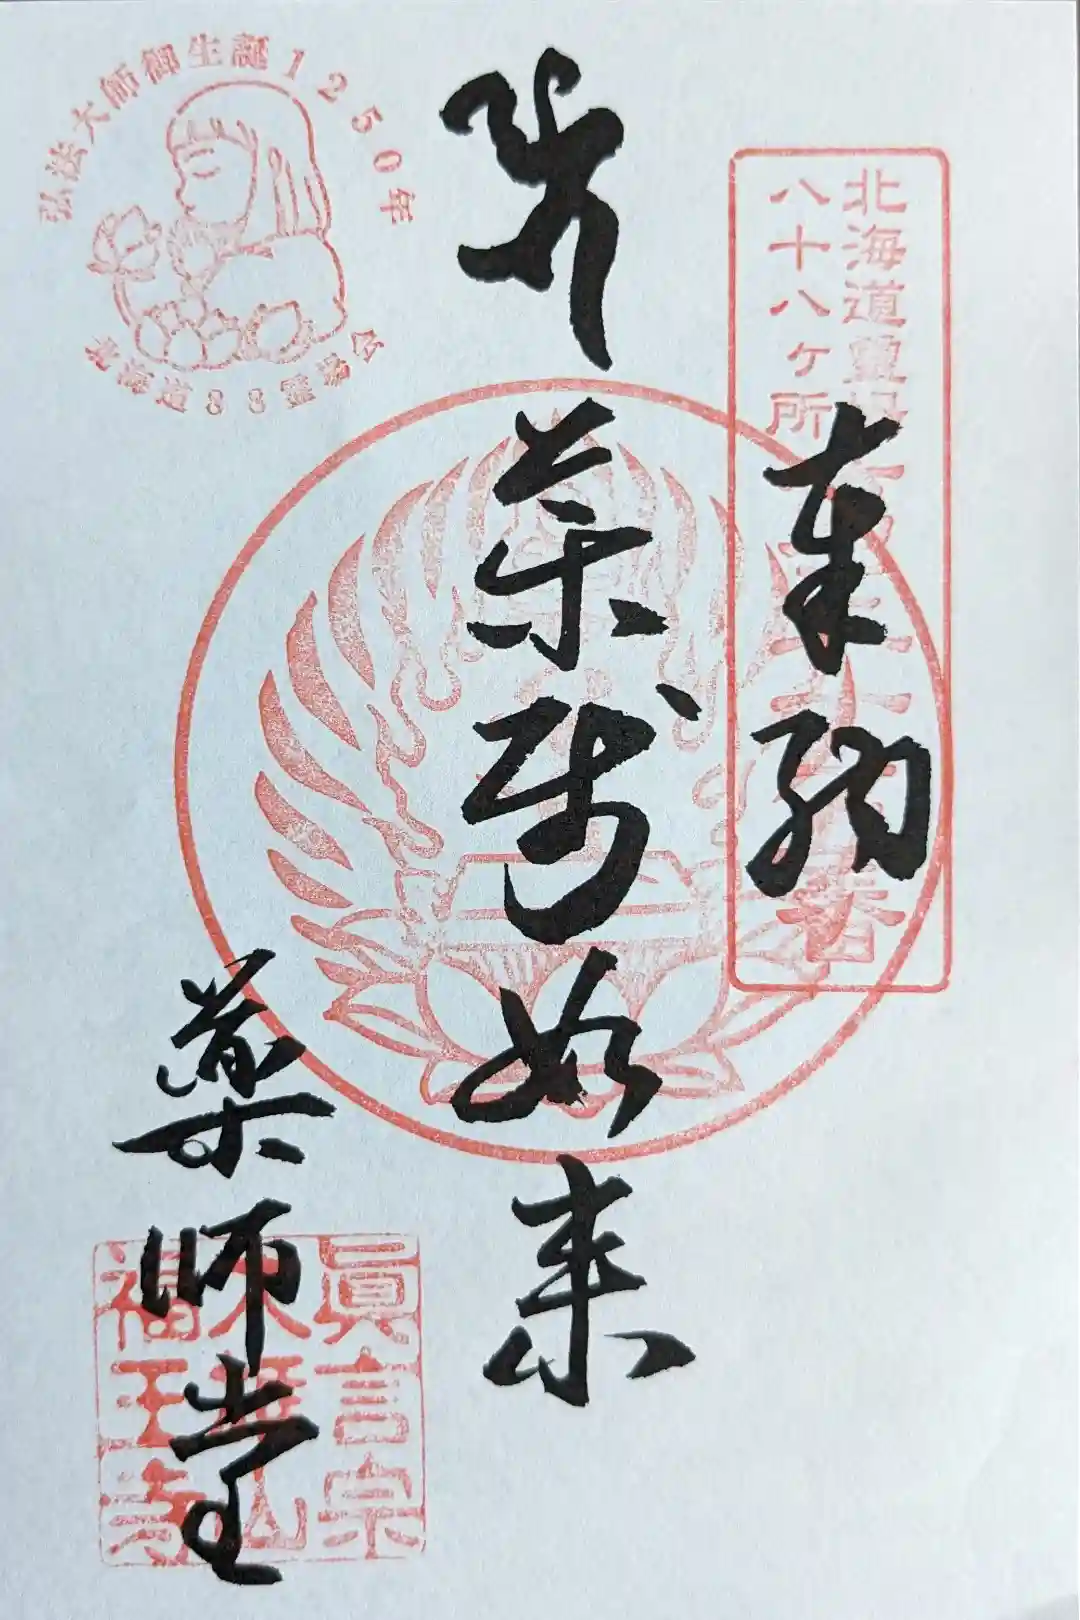 弘法大師御生誕1250年
北海道88霊場会
北海道霊場
八十八ヶ所
番
奉納
薬師如来
薬師堂
眞言宗
山
福王寺